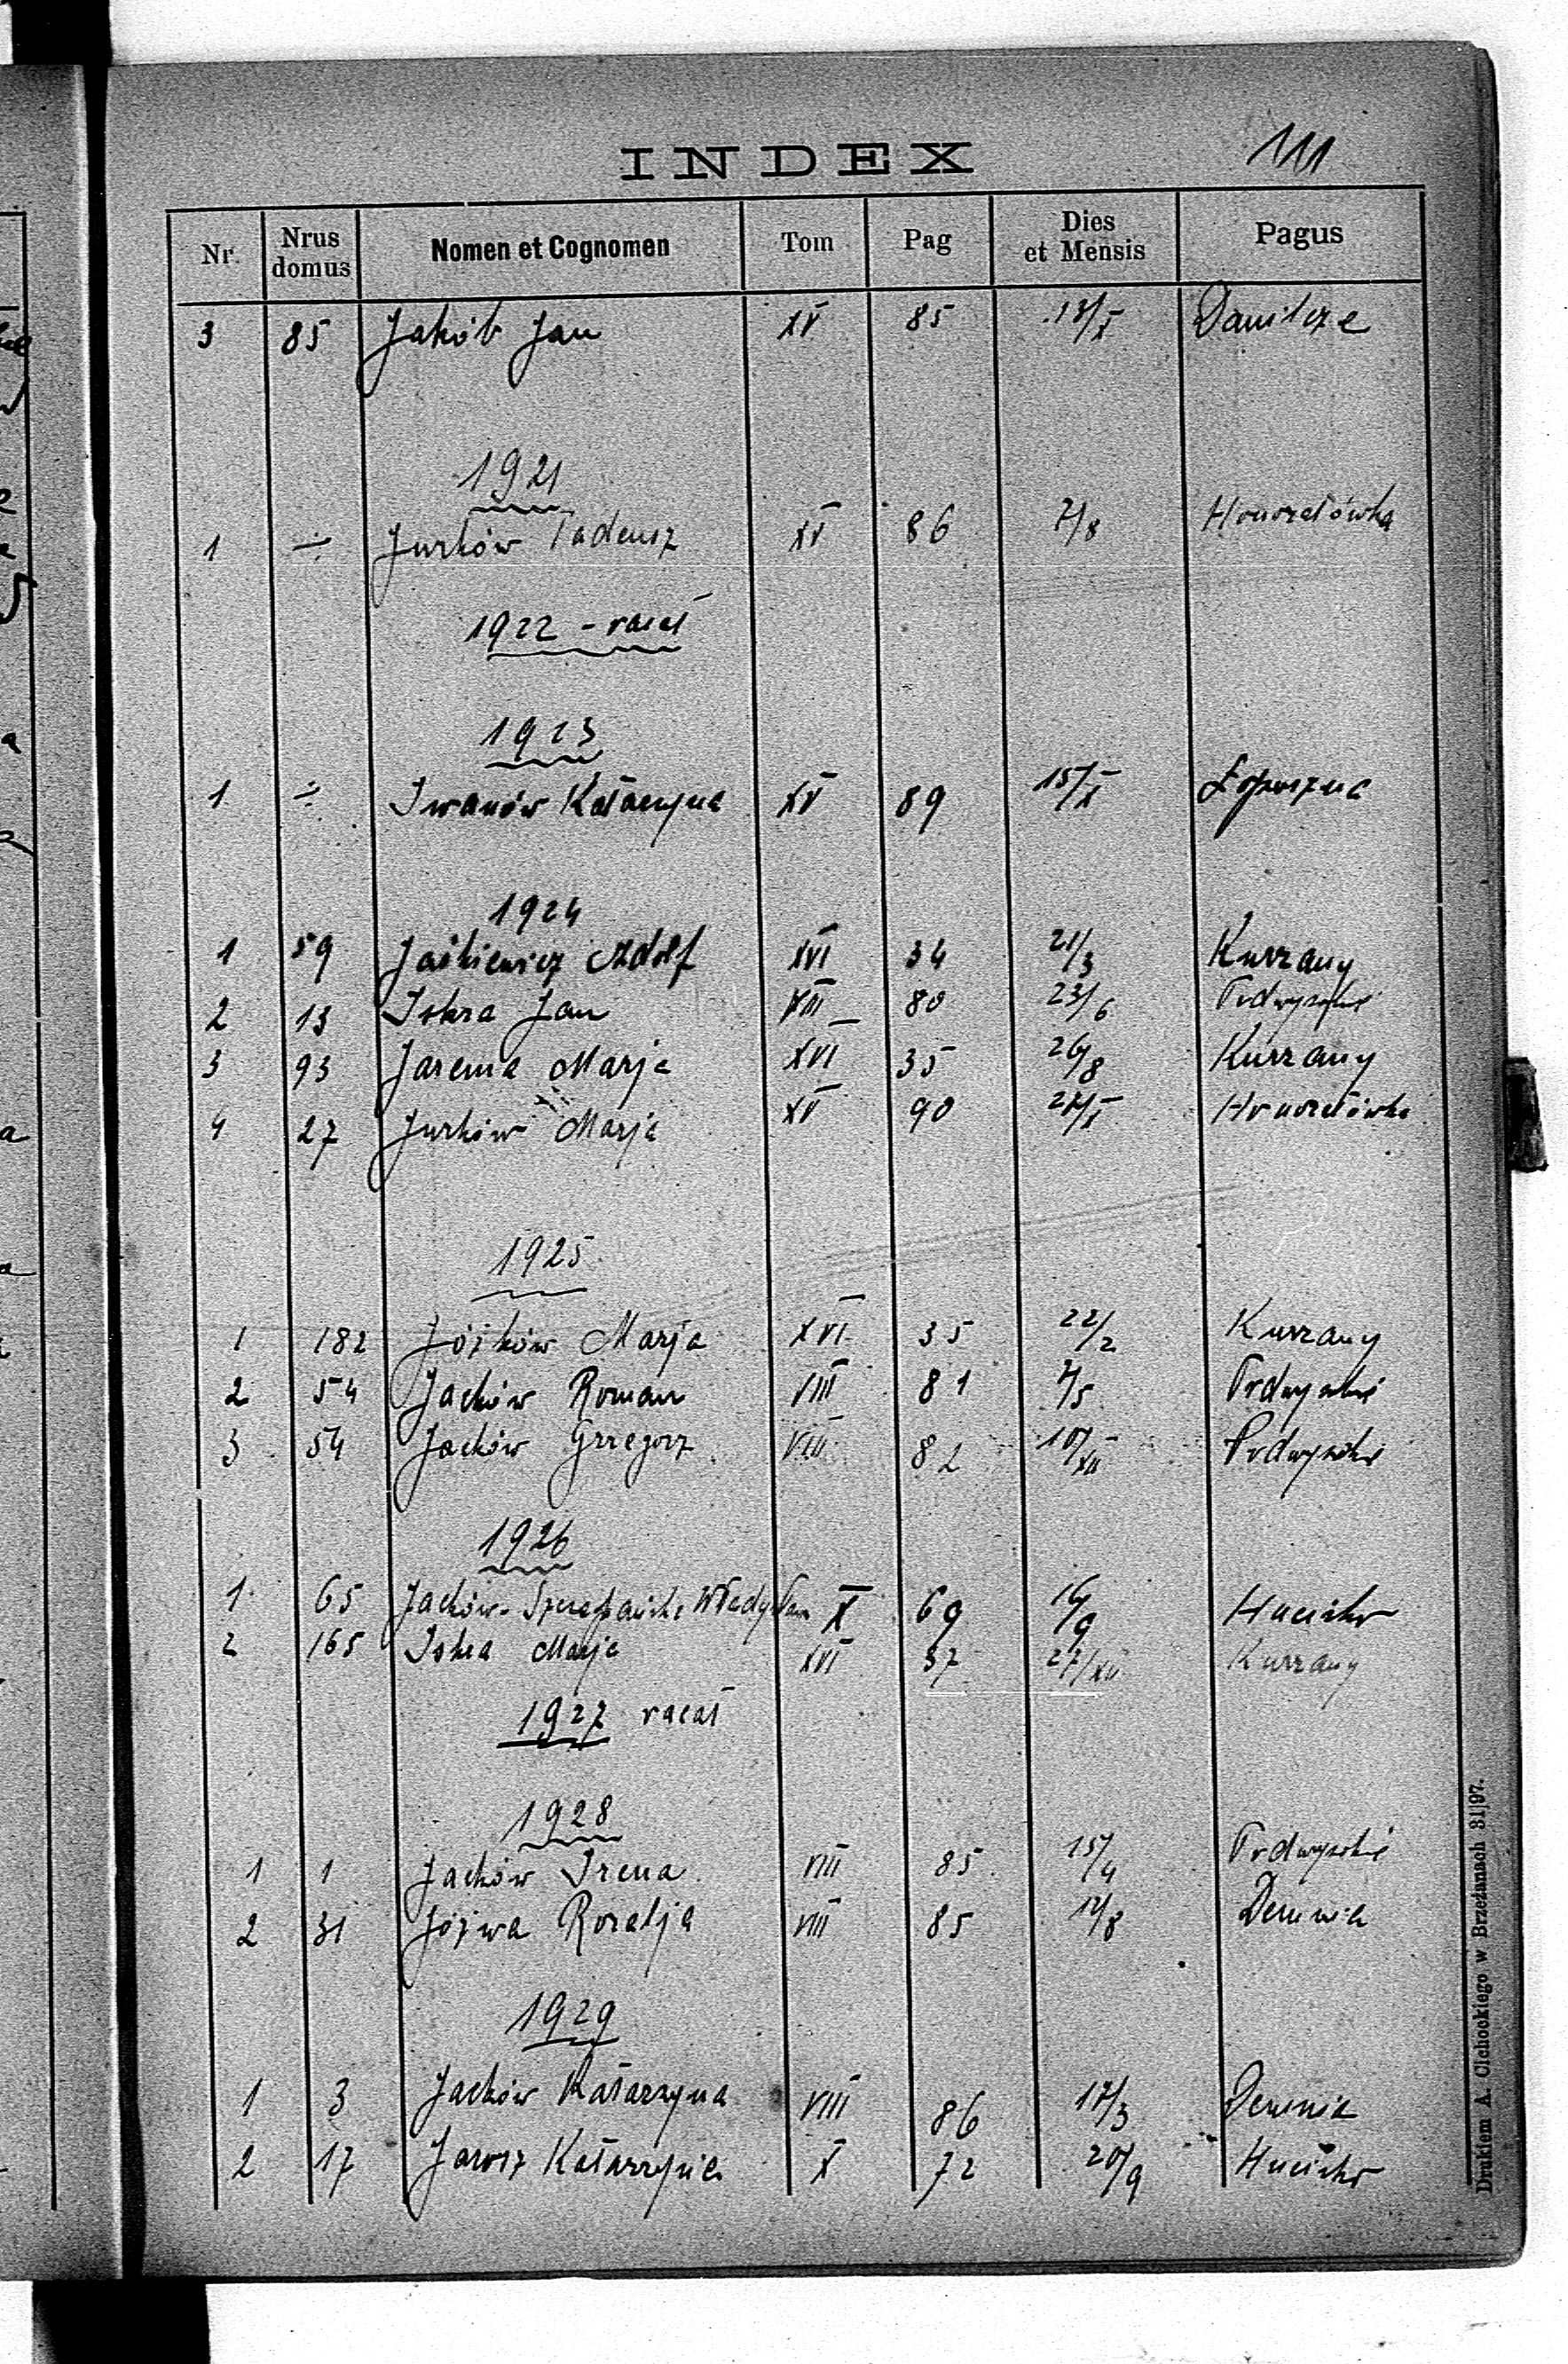 111
INDEX
Nr. Nrus domus Nomen et Cognomen Tom Pag Dies et Mensis Pagus
3 85 Jakób Jan XV 85 13/X Danilcze
1921
1 ÷ Jurków Tadeusz XV 86 7/8 Honoratówka
1922 - vacat
1923
1 ÷ Iwanów Katarzyna XV 89 15/X Łopuszna
1924
1 59 Jaśkiewicz Adolf XVI 34 21/3 Kurzany
2 13 Iskra Jan VIII 80 23/6 Podwysokie
3 93 Jarema Marja XVI 35 26/8 Kurzany
4 27 Jurków Marja XV 90 Honoratówka
1925
1 182 Jóźków Marja XVI 35 22/2 Kurzany
2 54 Jacków Roman VIII 81 7/5 Podwysokie
3 54 Jacków Grzegorz VIII 82 10/XII Podwysokie
1926
1 65 Jacków-Szczepański Władysław X 69 16/9 Hucisko
2 165 Iskra Marja XVI 37 27/XII Kurzany
1927 vacat
1928
1 1 Jacków Irena VIII 85 15/4 Podwysokie
2 31 Józwa Rozalja VIII 85 12/8 Demnia
1929
1 3 Jacków Katarzyna VIII 86 17/3 Demnia
2 17 Jarosz Katarzyna X 72 20/9 Hucisko
Drukiem A. Olchockiego w Brzeżanach 31|97.